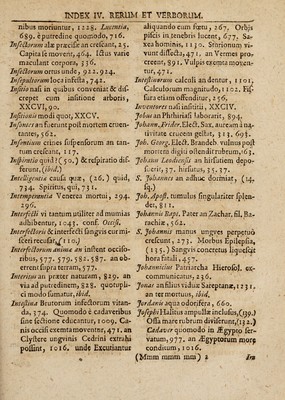 INDEX IV. RERUM ET VERBORUM.
nibus moriuntur, 1128. Lucentia,
689. è putredine quomodo, 716.
Insectorum alæ præcisæ an crescant, 25.
Capita se movent, 464. Ictus varie
maculant corpora, 536.
Insectorum ortus unde, 922. 924.
Insepultorum loca infesta, 742.
Insitio nasi in quibus conveniat & dis-
crepet cum insitione arboris,
XXCVI, 90.
Insitionis modi quot, XXCV.
Insontes an fierent post mortem cruen-
tantes, 562.
Insontium crines suspensorum an tan-
tum crescant, 117.
Inspiratio quid? (50.) & respiratio dif-
ferunt, (ibid.)
Intelligentia causa quæ, (26.) quid,
734. Spiritus, qui, 731.
Intemperantia Venerea mortui, 294.
296.
Interfecti vi tantum utiliter ad mumias
adhibentur, 1045. conf. Occisi.
Interfectoris & interfecti sangvis cur mi-
sceri recusat, (110.)
Interfectorum anima an instent occiso-
ribus, 577. 579. 582. 587. an ob-
errent supra terram, 577.
Interitus an præter naturam, 829. an
via ad putredinem, 828. quotupli-
ci modo fumatur, ibid.
Intestina Brutorum insectorum vitan-
da, 374. Quomodò è cadaveribus
sine sectione educantur, 1009. Ca-
nis occisi exenta moventur, 471. an
Clystere ungvinis Cedrini extrahi
possint, 1016. unde Excutiantur
aliquando eum fœtu, 267. Orbis
piscis in tenebris lucent, 677. Sal-
vea hominis, 1130. Strionum vi-
vunt dissecta, 471. an Vermes pro-
creent, 891. Vulpis exenta moven-
tur, 471.
Intestinorum calculi an dentur, 1101.
Calculorum magnitudo, 1102. Fis-
sura etiam offenditur, 256.
Inventores nasi insititii, XXCIV.
Jobæ an Phthiriasi laborarit, 894.
Johann. Frider. Elect. Sax. aurum à na-
tivitate crucem gestat, 313, 693.
Joh. Georg. Elect. Brandeb. vulneris post
mortem digiti ostendit rubrum, 63.
Johann Leudiensis an hirsutiem depo-
suerit, 37. hirsutus, 35. 37.
S. Johannes an adhuc dormiat, (14.
sq.)
Joh. Apost. tumulus singulariter splen-
det, 811.
Johannis Bapt. Pater an Zachar. fil. Ba-
rachiæ, 562.
S. Johannis manus ungves perpetuò
crescunt, 273. Morbus Epilepsia,
(135.) Sangvis concretus liquescit
hora fatali, 457.
Johannitius Patriarcha Hierosol. ex-
communicatus, 236.
Jonas an filius viduæ Sareptanæ, 1231.
an ter mortuus, ibid.
Jordanis aqua odorifera, 660.
Josephi Halitus ampullæ inclusus, (139.)
Ossa mare rubrum diviserunt, (132.)
Cadaver quomodo in Ægypto ser-
vatum, 977. an Ægyptorum more
conditum, 1016.
(Mmm mmm mm) 2